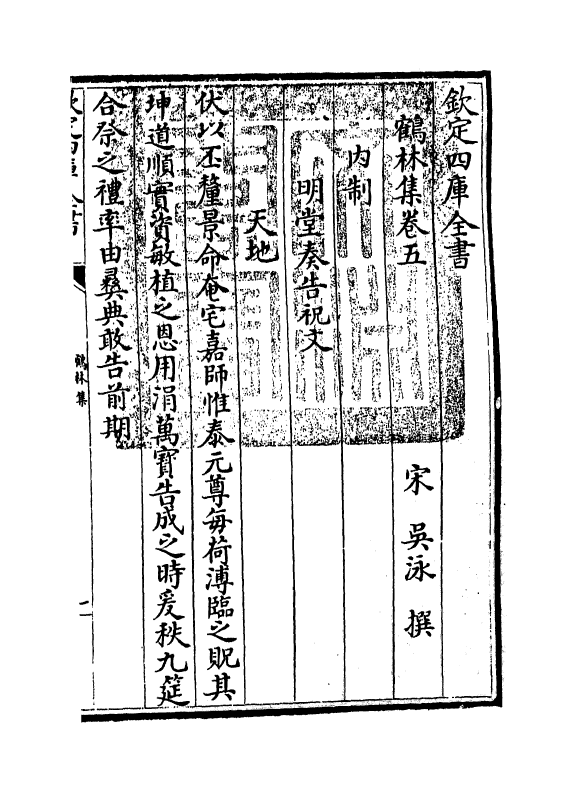 欽定四庫全書
鶴林集卷五
宋 吳泳 撰
内制
明堂奏告祝文
天地
伏以丕釐景命奄宅嘉師惟泰元尊每荷溥臨之貺其
坤道順實資敏植之恩用涓萬寳告成之時爰秩九筵
合祭之禮率由彞典敢告前期
鶴林集